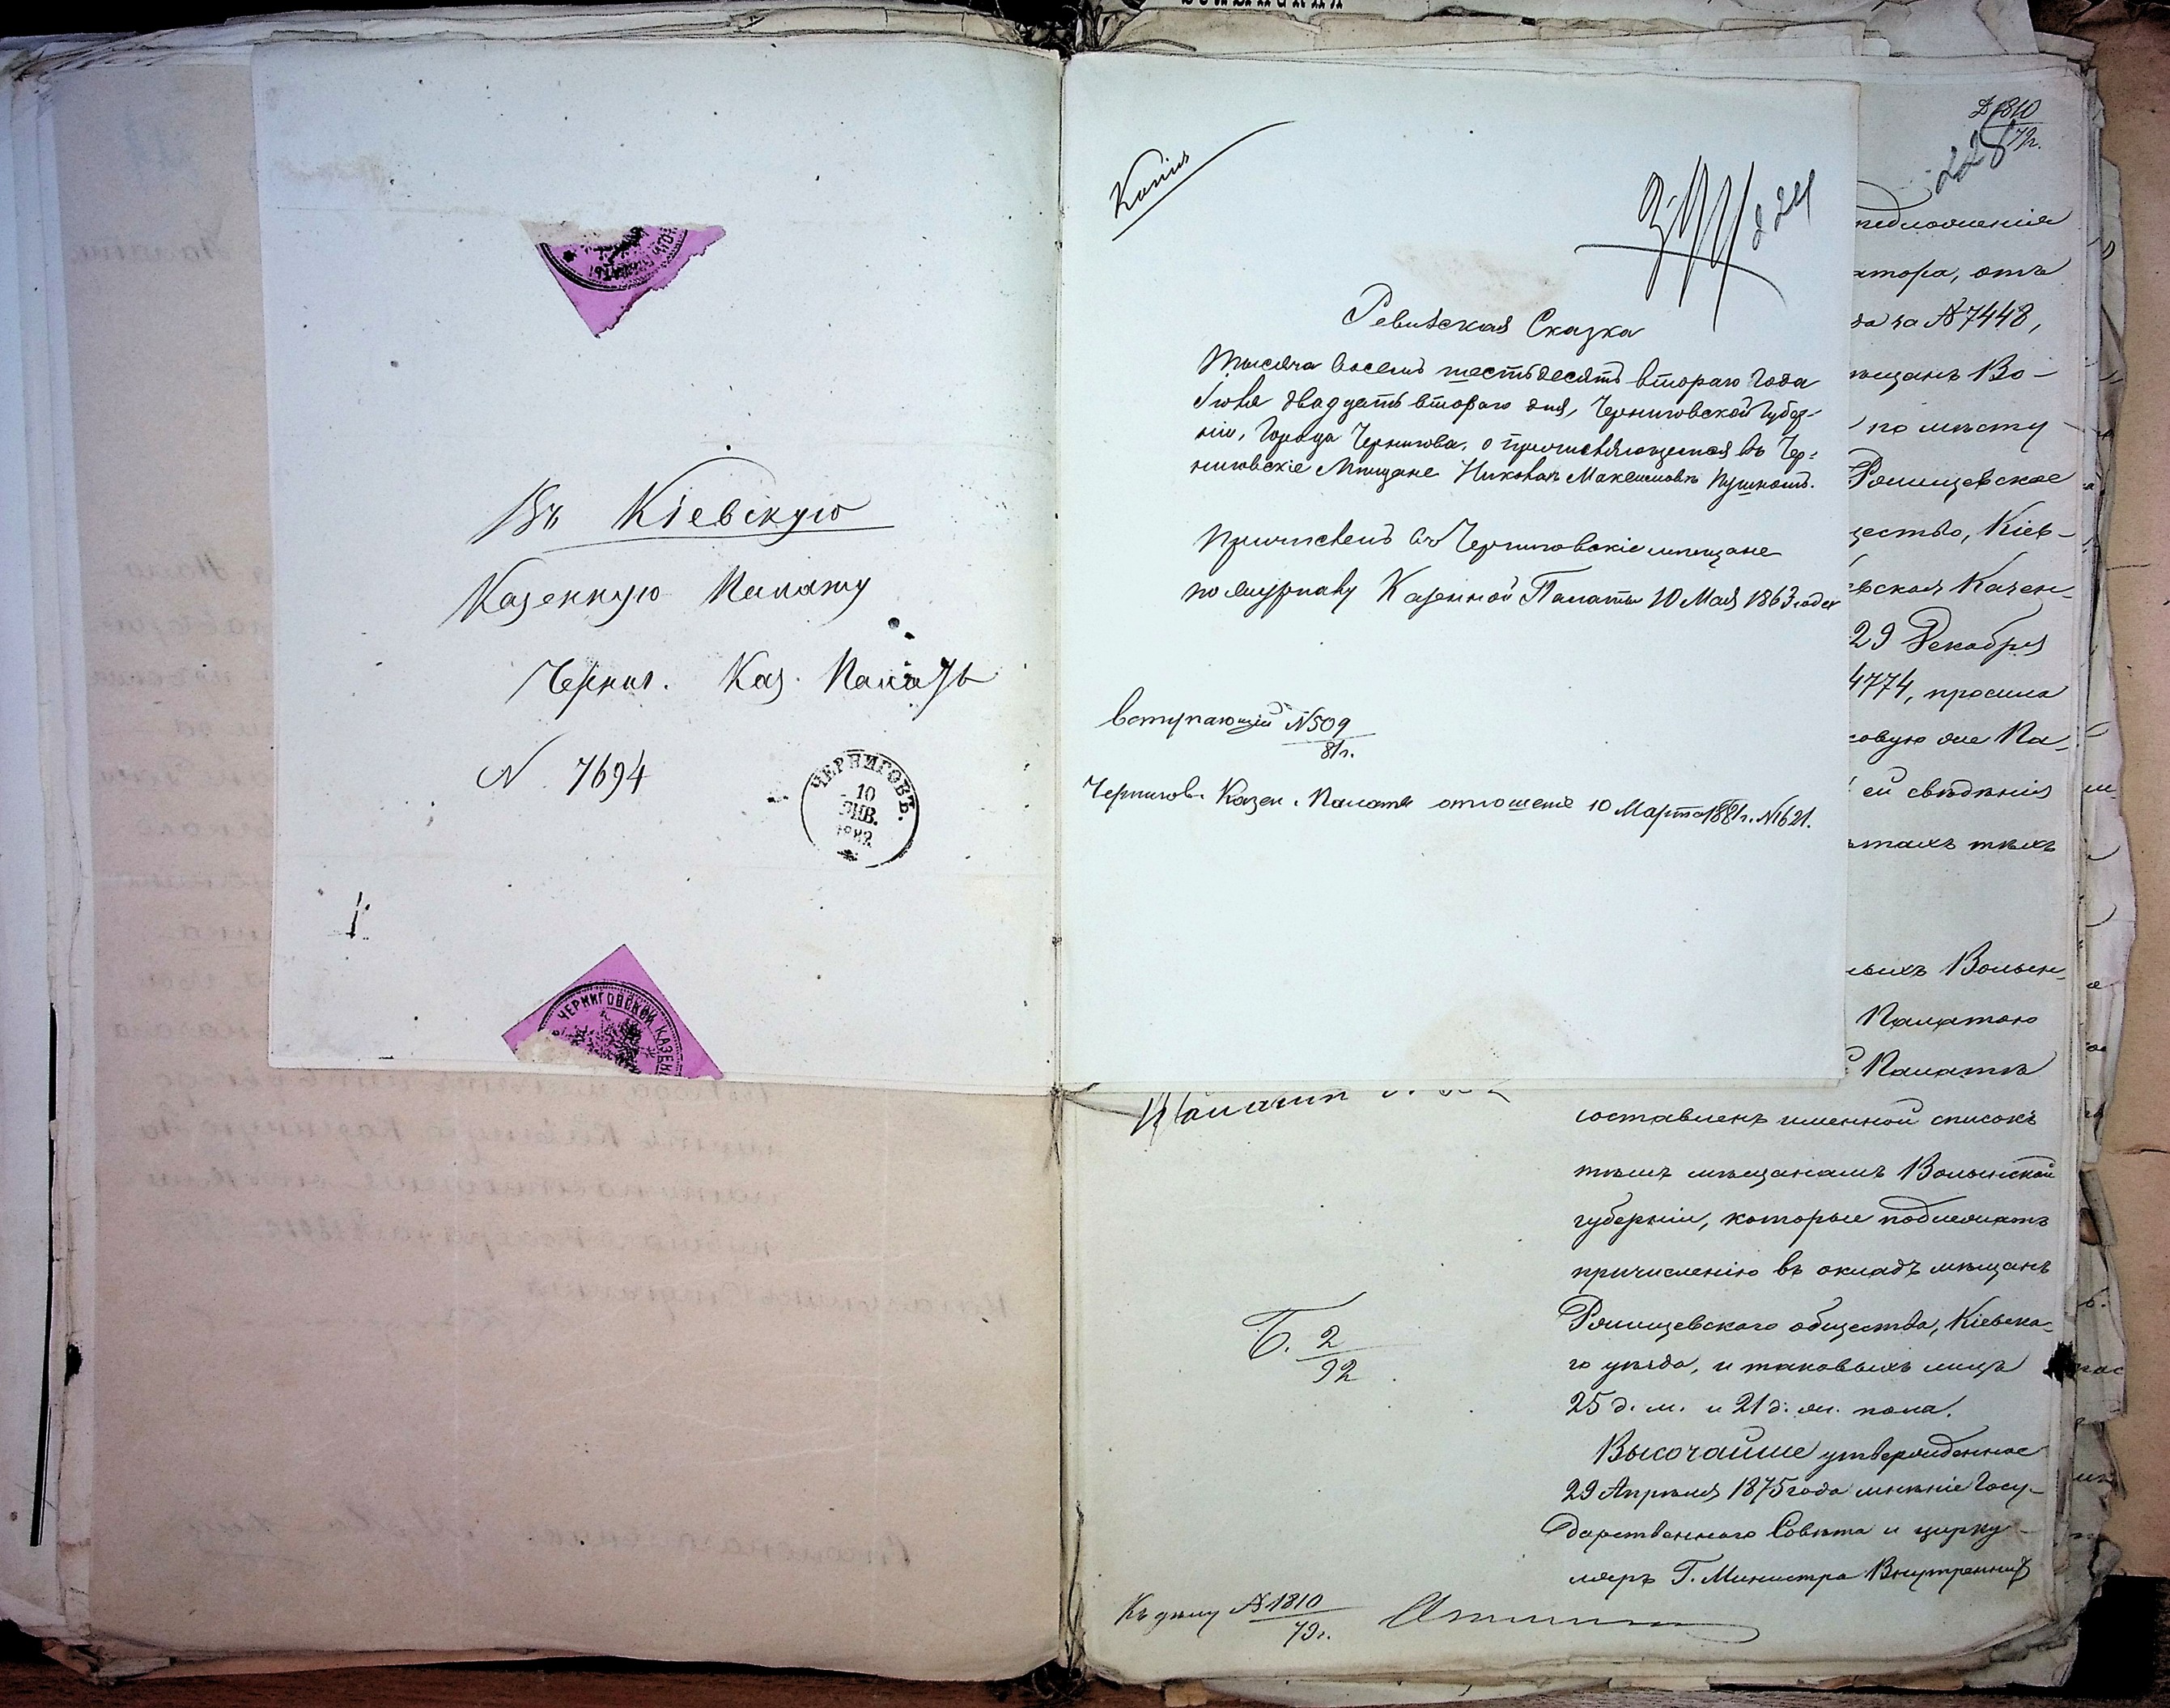 Въ Кіевскую
Казенную Палату
Черниг. Каз. Палаты
N 7694
ЧЕРНИГОВЪ.
10
ЯНВ.
1882
ЧЕРНИГОВСКОЙ КАЗЕН
Копія
224
Ревизская Сказка
Тысяча восемь шестьдесятъ втораго Года
Іюня двадцать втораго дня, Черниговской Губер-
ніи, Города Чернигова, о причисляющемся въ Чер-
ниговскіе Мѣщане Николаѣ Максимовѣ
Причисленъ въ Черниговскіе мѣщане
по журналу Казенной Палаты 10 Мая 1863 года
вступающій N 509
81 г.
Чернигов. Казен. Палаты отношеніе 10 Марта 1881 г. N 1621.
№ 1810
79 г.
228
едложенія
атора, отъ
да за № 7448,
ѣщанъ Во-
по мѣсту
Рожищевское
щество, Кіев-
евская Казен-
29 Декабря
4774, просила
совую же Па-
ей свѣдѣнія
ѣтахъ тѣхъ
ныхъ Волын-
Палатою
Палатѣ
составленъ именной списокъ
тѣмъ мѣщанамъ Волынской
губерніи, которые подлежатъ
причисленію въ окладъ мѣщанъ
Рожищевскаго общества, Кіевска-
го уѣзда, и таковыхъ лицъ
25 д. м. и 21 д. ж. пола.
Высочайше утвержденное
29 Апрѣля 1875 года мнѣніе Госу-
дарственнаго Совѣта и цирку-
ляръ Г. Министра Внутреннихъ
Б. 2
92
Къ дѣлу № 1810
79 г.